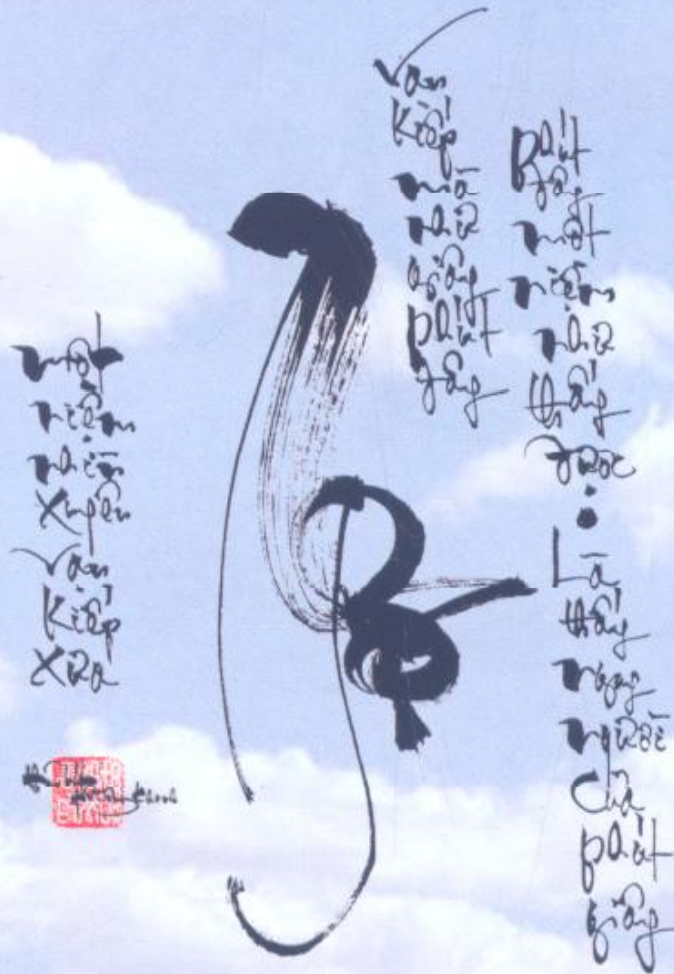 một niệm nhìn xuyên vạn kiếp xưa
Như
Vạn kiếp mà như giây phút đây
phút đây một niệm như thấy được • Là thấy ngay người của phút giây